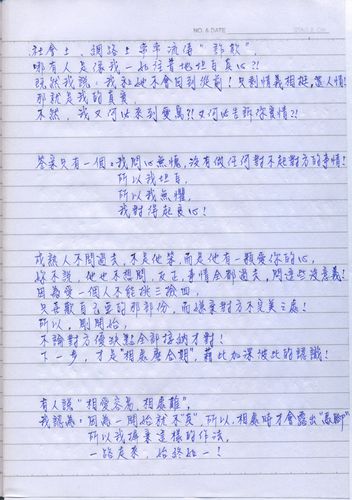 NO. & DATE
社會上、網路上常常流傳"詐欺",
哪有人是像我一如往昔地坦白真心?!
既然我說,我和她不會回到從前!只剩情義相挺,無人情!
那就是我的真實,
不然,我又何必來到愛馬?!又何必告訴你實情?!
答案只有一個:我問心無愧,沒有做任何對不起對方的事情!
所以我坦白,
所以我無懼,
我對得起良心!
成熟人不問過去,不是他笨,而是他有一顆愛你的心,
妳不說,他也不想問,反正,事情全都過去,問這些沒意義!
因為愛一個人不能挑三撿四,
只喜歡自己要的那部份,而嫌棄對方不完美之處!
所以,剛開始,
不論對方優缺點全部接納才對!
下一步,才是"相處磨合期",藉此加深彼此的認識!
有人說"相愛容易,相處難",
我認為:因為一開始就不"真",所以,相處時才會露出"馬腳",
所以我摒棄這樣的作法,
一路走來,始終如一!